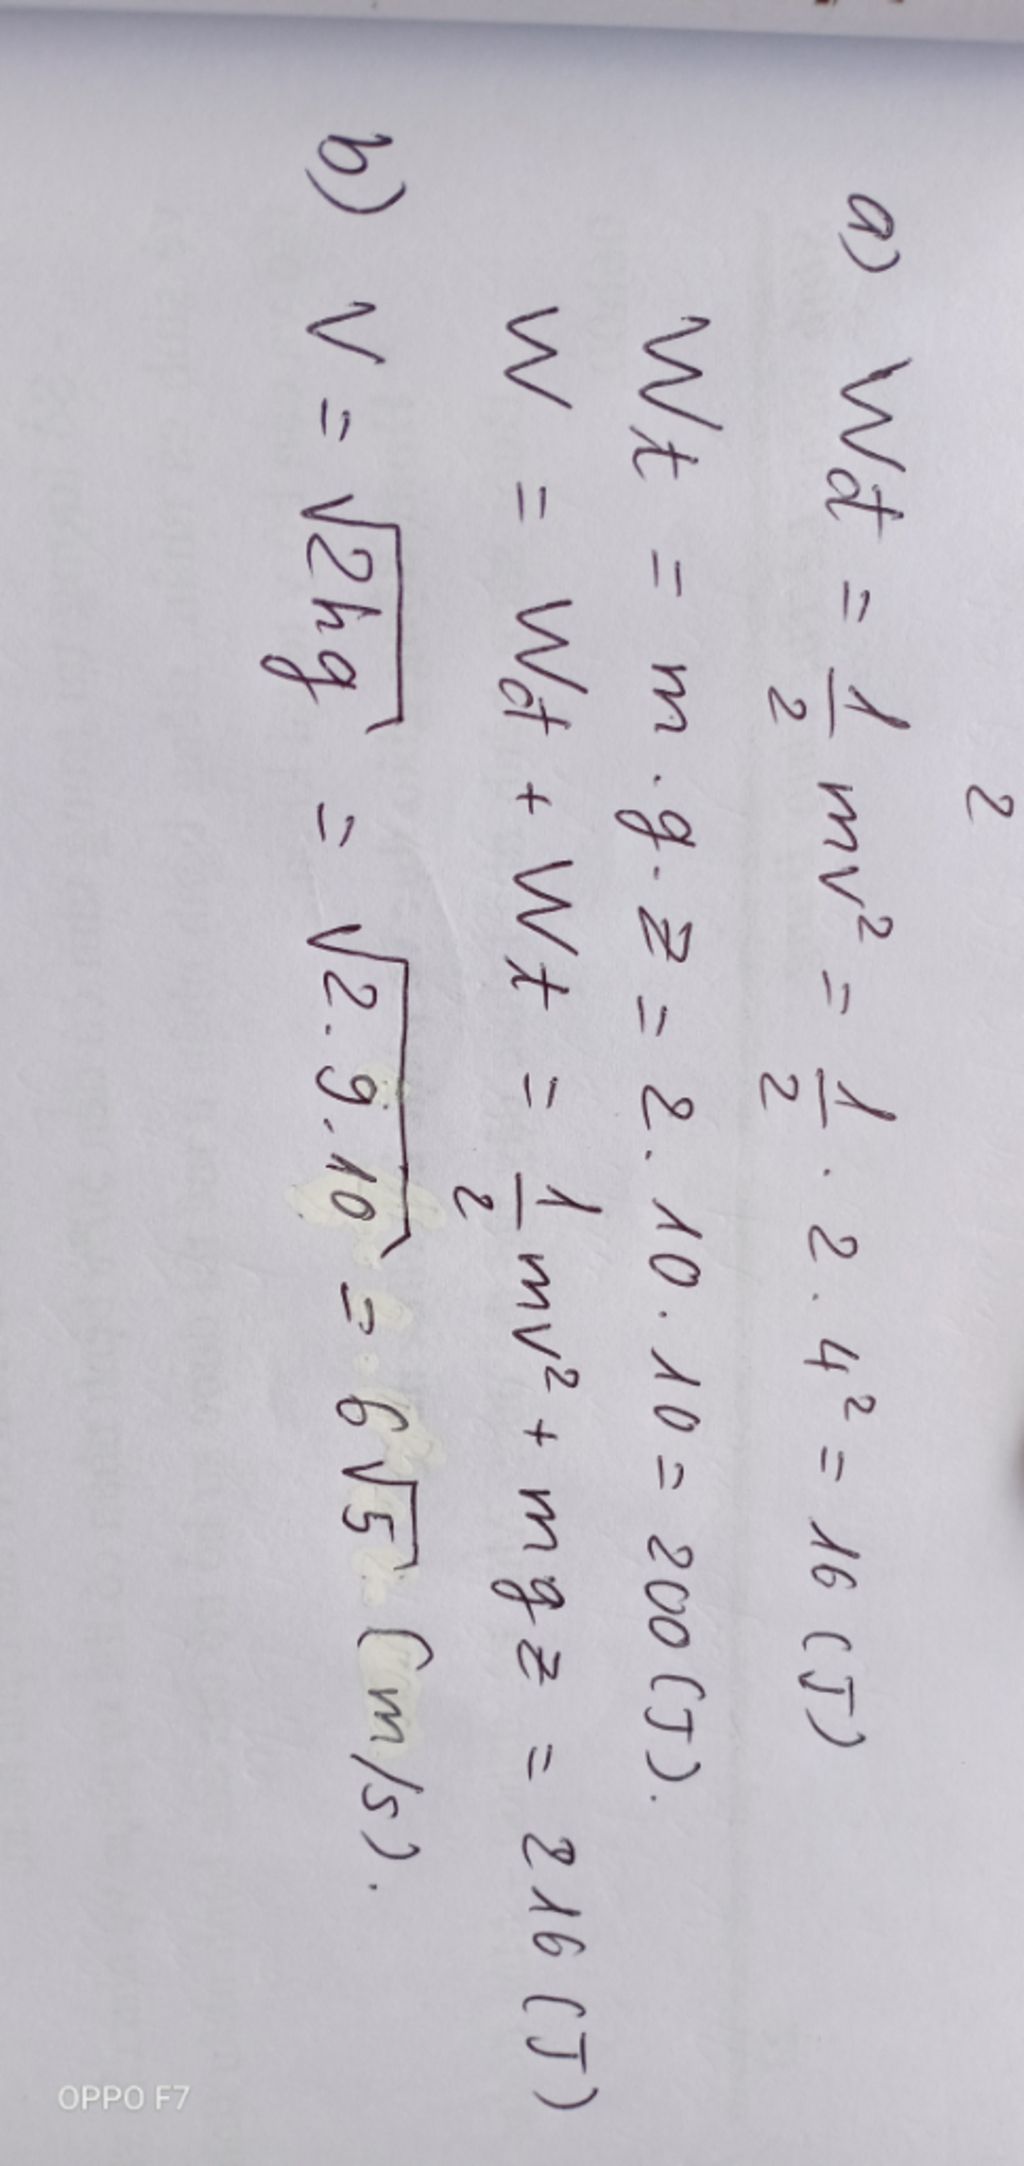 2
a) Wđ = 1/2 mv² = 1/2 . 2 . 4² = 16 (J)
Wt = m . g . z = 2 . 10 . 10 = 200 (J).
W = Wđ + Wt = 1/2 mv² + mgz = 216 (J)
b) V = √2hg = √2.9.10 = 6√5 (m/s).
OPPO F7